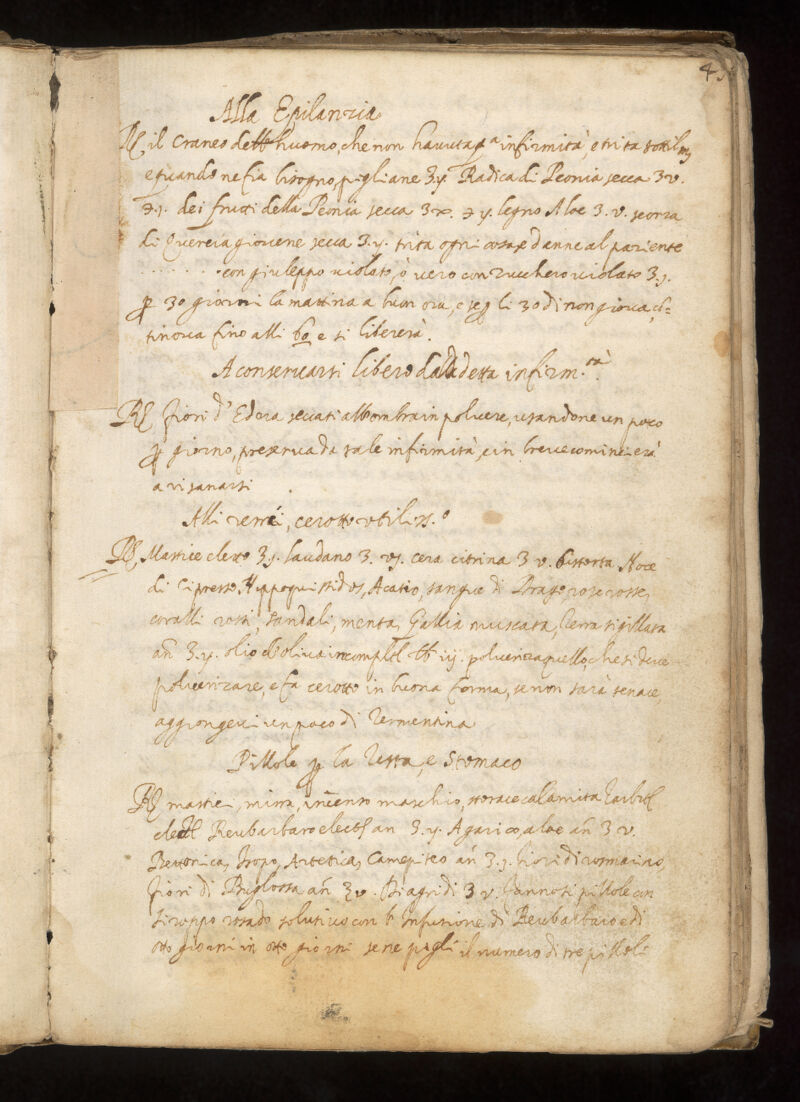 45
Alla Epilanzia
℞ il craneo dell'huomo, che non havuta p.ª infirmità, e trita sottilm.
e quando ne fia bisogno, pigliane ʒ.y. Radica di Peonia secca ʒ v.
℈.j. dei frutti della Peonia secca ʒ x. ℈ y. legno Aloe ʒ. v. scorza
di Quercia giovene secca ʒ.y. trita ogni cosa, e danne al paziente
........ con giuleppo violato, ò vero con zucchero violato ʒ j.
ꝑ 30 giorni la mattina a buon ora, e se gli 30 dì non giova,
tinova fino alli 60 e si libererà.
A conservarsi libero dalla detta infirm.tà
℞ Fiori d'Edera seccati all'ombra in polvere, usandone un poco
ꝑ giorno, preserva da tale infirmità, e in breve comincierà
a risanarsi
Alli reni, cerotto utiliss.o
℞ Mastice eletto ʒ j. laudano ʒ. vj. cera citrina ʒ v. bistorta Noce
di Cipresso, Hippoquistidos, Acatio, sangue di Drago rose rosse,
coralli rossi, sandali, menta, Gallia muscata, Terra sigillata
añ ʒ.y. olio d'oliva incomplet ℔ iij. polveriza quello, che si deve
polverizare, e fa cerotto in buona forma, se non sarà tenace,
aggiongevi un poco di Termentina
Pillole ꝑ la Testa, e Stomaco
℞ mastice, mirra, incenso maschio, storace calamita Turbit
elect Reubarbaro elect an ʒ.y. Agarico, aloe añ ʒ v.
Bettonica, Isopo, Artetica, Camepiteo añ ʒ.j. fiori di rosmarino,
fiori di Buglossa añ ʒ v. Diagridi ʒ v. fannosi pillole con
siroppo rosado solutivo con Infusione di Reubarbaro e di
otto giorni in otto giorni se ne pigli il numero di tre pillole